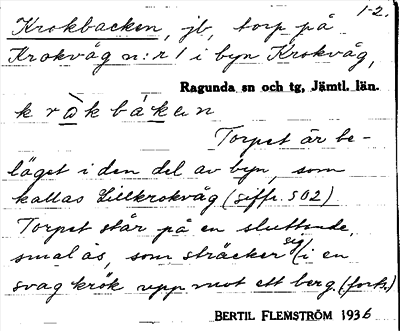 1-2.
Krokbacken, jb, torp på
Krokvåg n:r 1 i byn Krokvåg,
Ragunda sn och tg, Jämtl. län.
k r ò k b á k e n
Torpet är be-
läget i den del av byn, som
kallas Lillkrokvåg (siffr. 502)
Torpet står på en sluttande,
smal ås, som sträcker sig i en
svag krök upp mot ett berg. (forts.)
BERTIL FLEMSTRÖM 1936